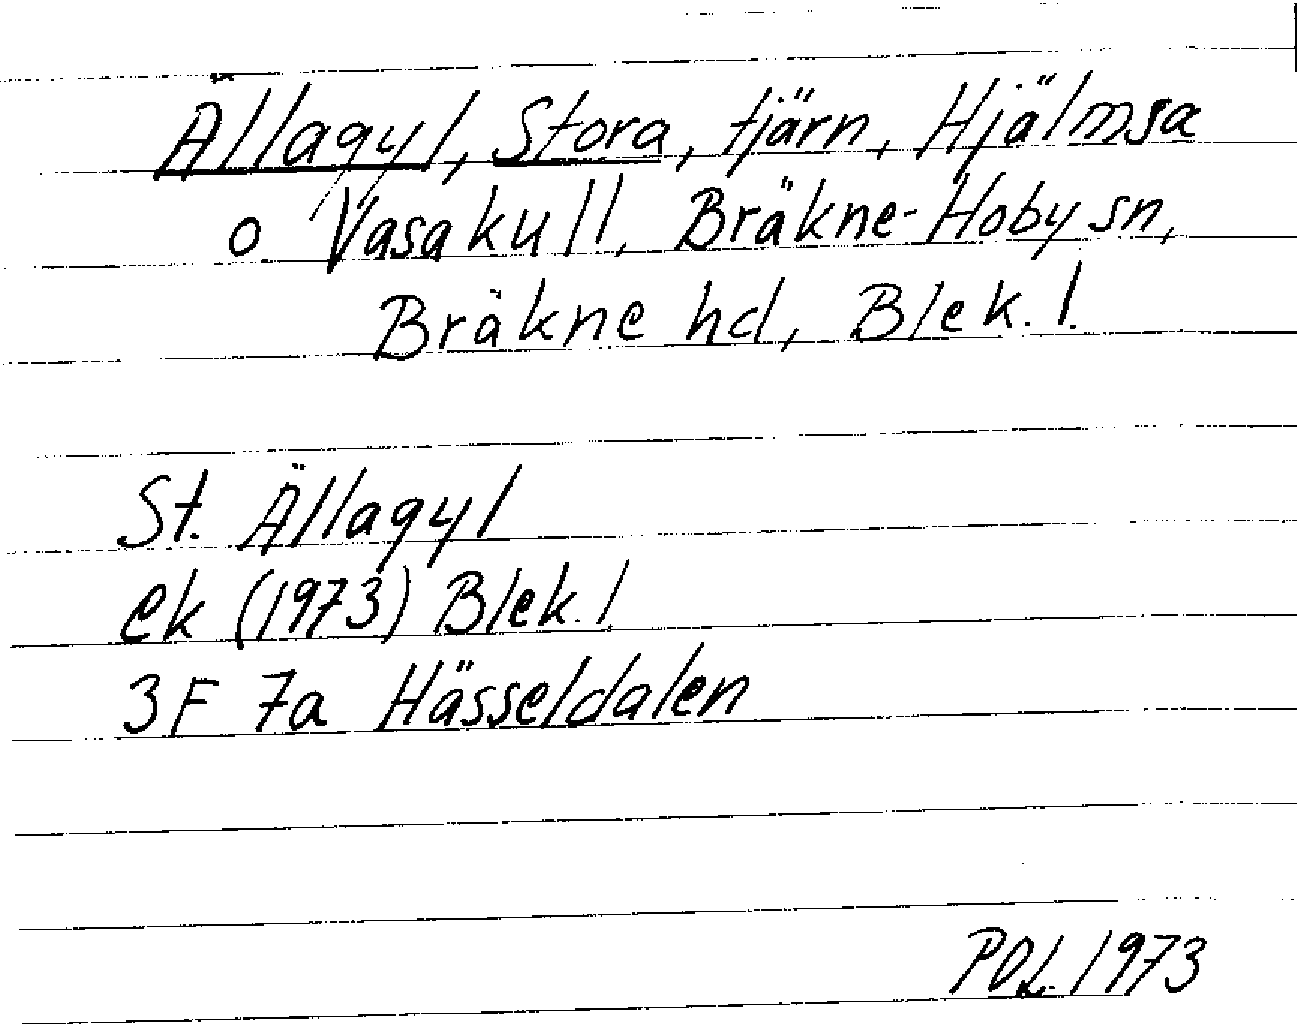 Ällagyl, Stora, tjärn, Hjälmsa
o Vasakull, Bräkne-Hoby sn,
Bräkne hd, Blek. l.
St. Ällagyl
ek (1973) Blek. l
3F 7a Hässeldalen
POL 1973